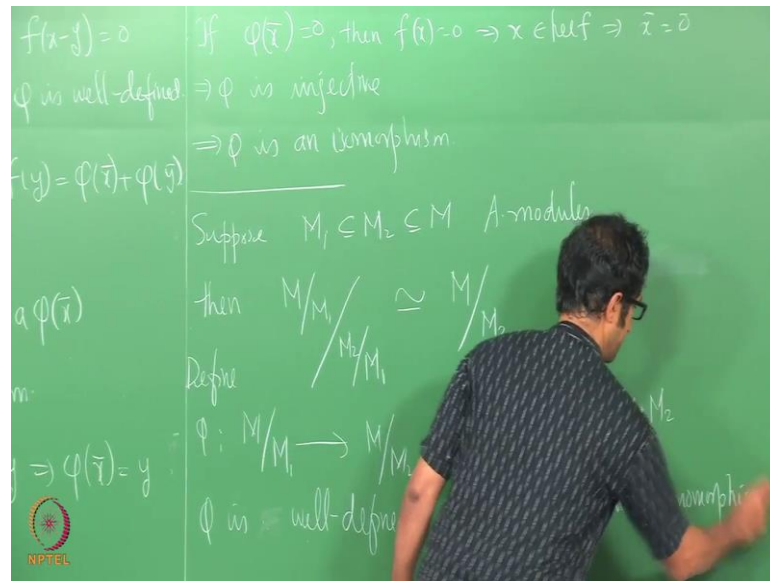 f(x-y)=0
φ is well-defined.
f(y) = φ(x̄)+φ(ȳ)
a φ(x̄)
m.
y ⇒ φ(x̄) = y
If φ(x̄)=0, then f(x)=0 ⇒ x ∈ ker f ⇒ x̄ = 0̄
⇒ φ is injective
⇒ φ is an isomorphism.
Suppose M₁ ⊆ M₂ ⊆ M A-modules
then M/M₁ / M₂/M₁ ≃ M/M₂
Define
φ: M/M₁ → M/M₂ M₂
φ is well-define
NPTEL